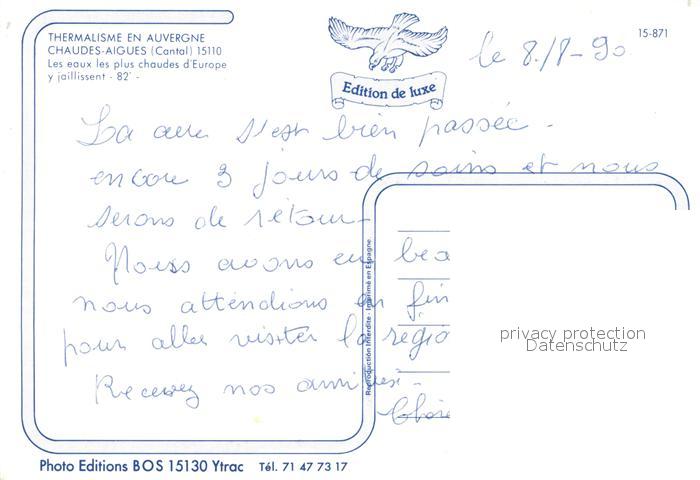 THERMALISME EN AUVERGNE
CHAUDES-AIGUES (Cantal) 15110
Les eaux les plus chaudes d'Europe
y jaillissent - 82° -
Edition de luxe
15-871
le 8/8-90
La cure s'est bien passée -
encore 3 jours de soins et nous
serons de retour -
Nous avons eu
nous attendions
pour aller visiter la
Recevez nos amitiés -
Reproduction Interdite - Imprimé en Espagne
privacy protection
Datenschutz
Photo Editions BOS 15130 Ytrac Tél. 71 47 73 17